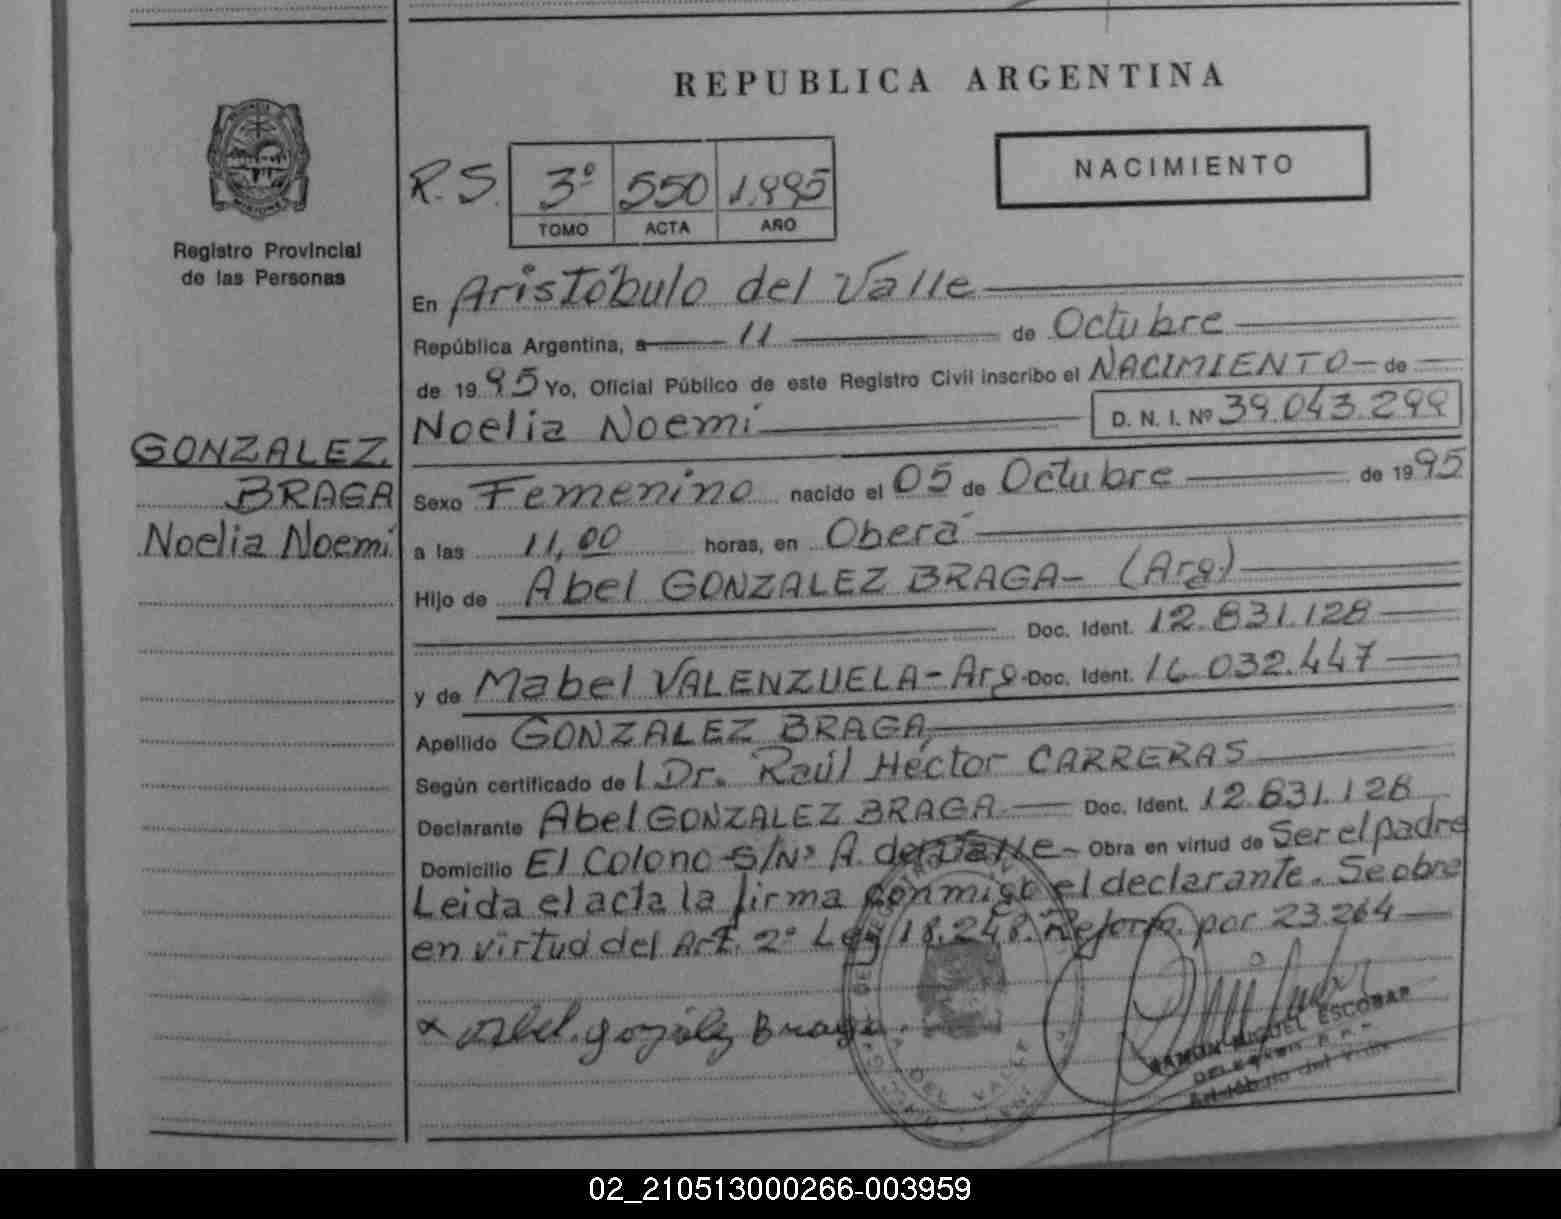 REPUBLICA ARGENTINA
NACIMIENTO
R.S. 3º 550 1.995
TOMO ACTA AÑO
MISIONES
Registro Provincial
de las Personas
En Aristóbulo del Valle
República Argentina, a 11 de Octubre
de 1995 Yo, Oficial Público de este Registro Civil inscribo el NACIMIENTO de
Noelia Noemí D. N. I. Nº 39.043.299
GONZALEZ
BRAGA
Noelia Noemí
Sexo Femenino nacido el 05 de Octubre de 1995
a las 11,00 horas, en Oberá
Hijo de Abel GONZALEZ BRAGA- (Arg.)
Doc. Ident. 12.831.128
y de Mabel VALENZUELA-Arg-Doc. Ident. 16.032.447
Apellido GONZALEZ BRAGA
Según certificado de Dr. Raúl Héctor CARRERAS
Declarante Abel GONZALEZ BRAGA Doc. Ident. 12.831.128
Domicilio El Colono-S/Nº A. del Valle- Obra en virtud de Ser el padre
Leida el acta la firma conmigo el declarante. Se obre
en virtud del Art. 2º Ley 18.248. Reform. por 23.264
x Abel. gonzález Braga
DEL VALLE
RAMON MIGUEL ESCOBAR
Aristóbulo del Valle
02_210513000266-003959